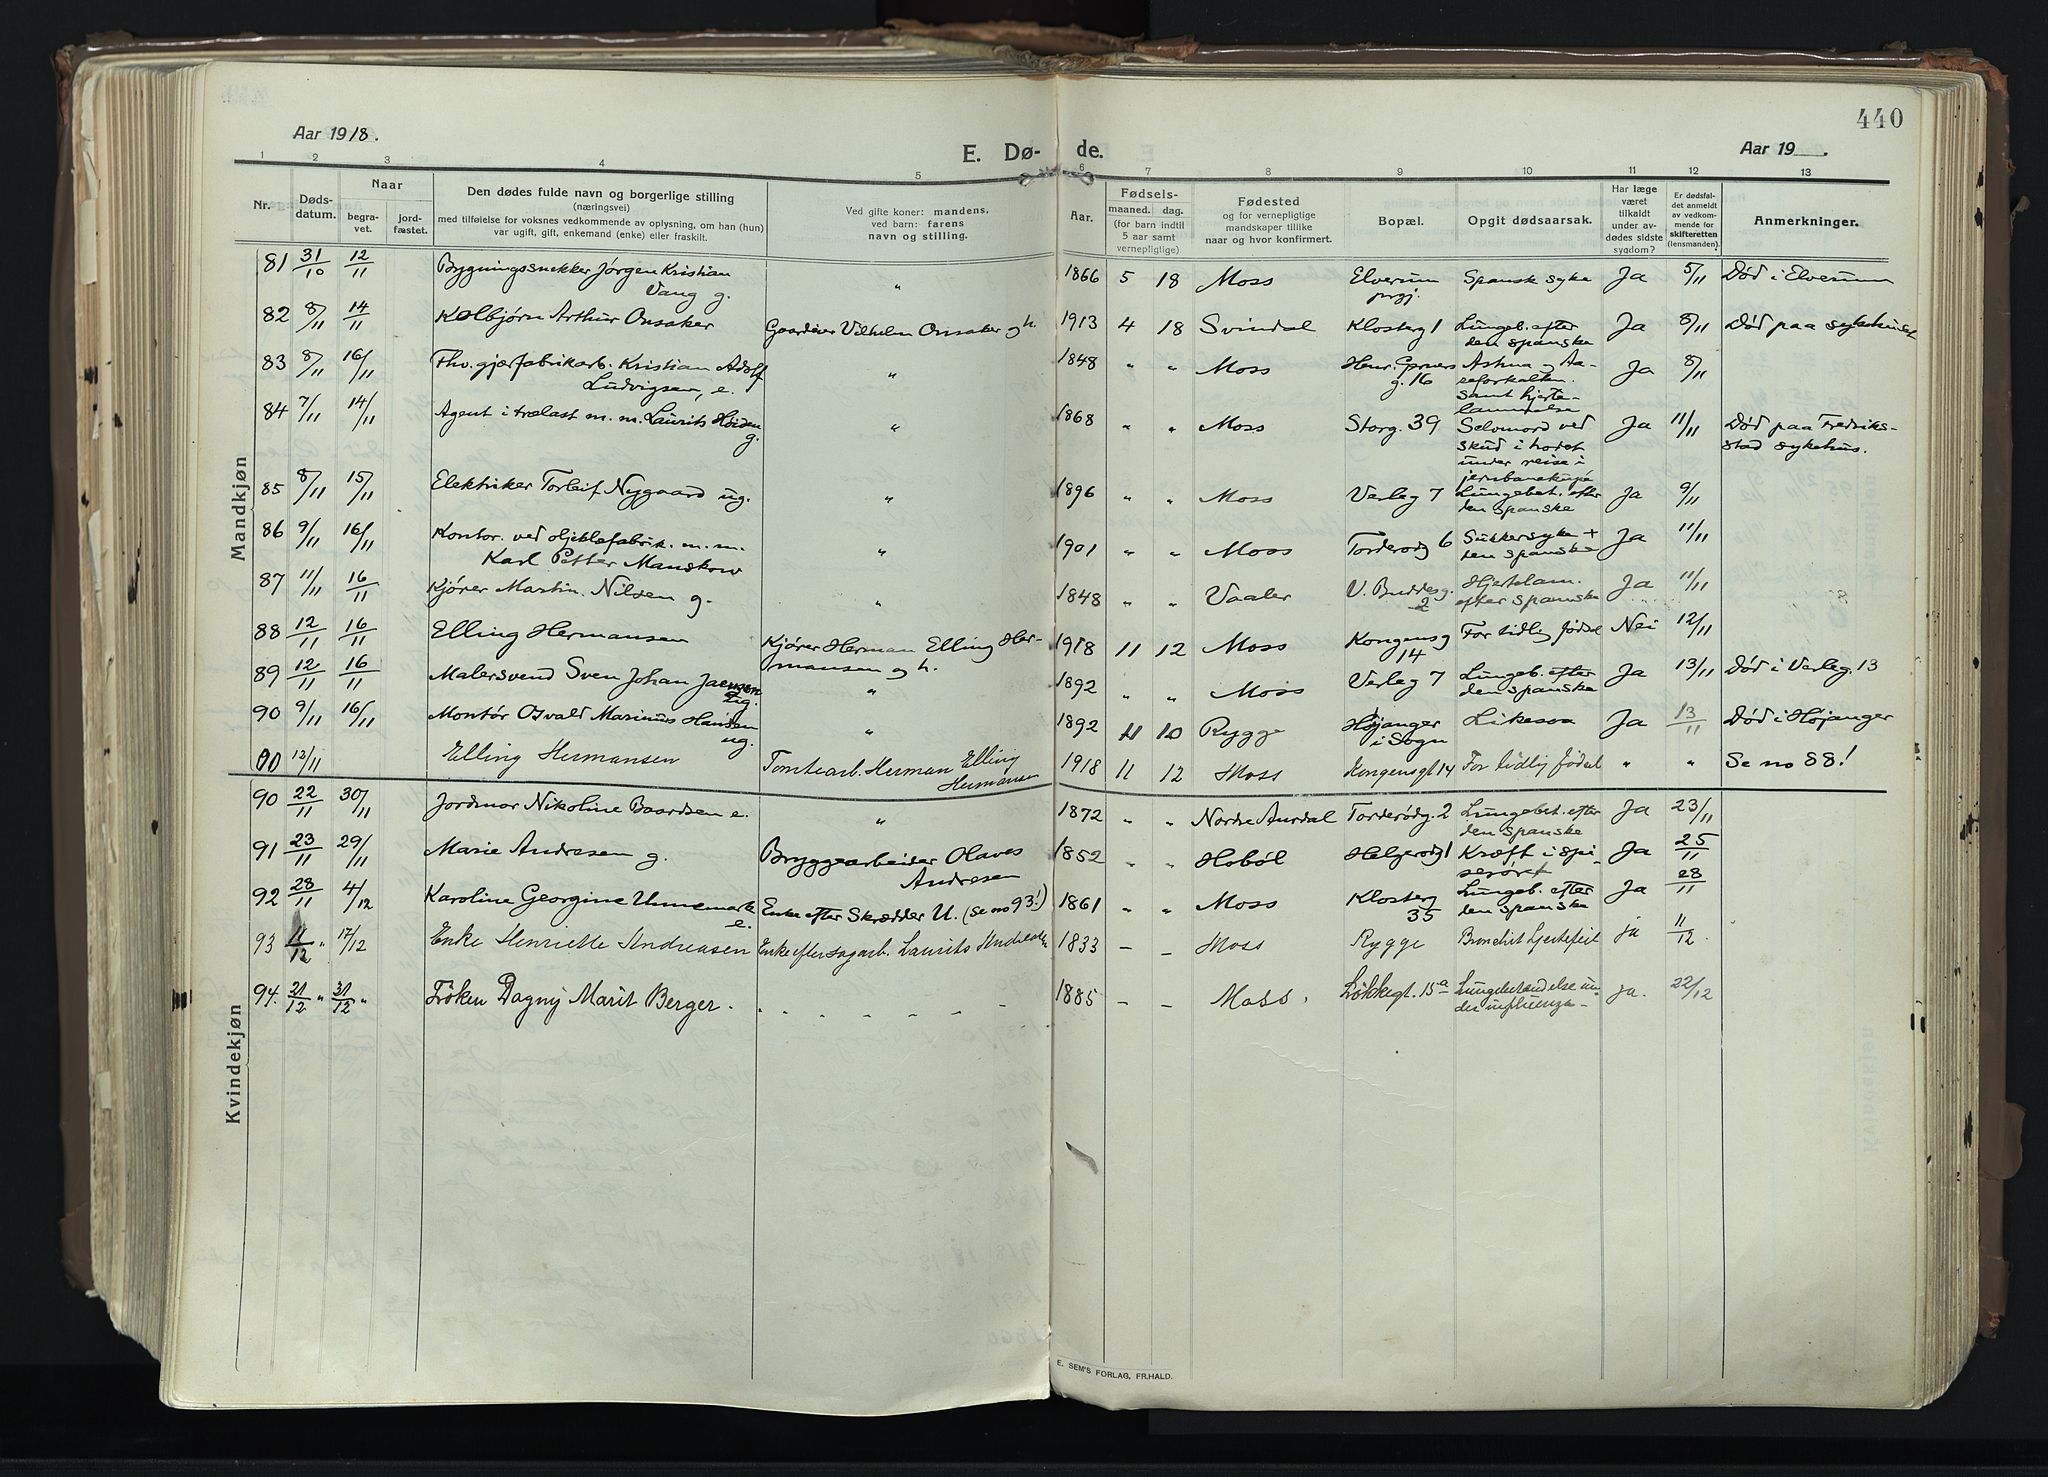 440
Aar 1918.
E. Dø-
de.
Aar 19
1 2 3 4 5 6 7 8 9 10 11 12 13
Nr.
Døds-
datum.
Naar
begra-
vet.
jord-
fæstet.
Den dødes fulde navn og borgerlige stilling
(næringsvei)
med tilføielse for voksnes vedkommende av oplysning, om han (hun)
var ugift, gift, enkemand (enke) eller fraskilt.
Ved gifte koner: mandens,
ved barn: farens
navn og stilling.
Aar.
Fødsels-
maaned. dag.
(for barn indtil
5 aar samt
vernepligtige)
Fødested
og for vernepligtige
mandskaper tillike
naar og hvor konfirmert.
Bopæl.
Opgit dødsaarsak.
Har læge
været
tilkaldt
under av-
dødes sidste
sygdom?
Er dødsfal-
det anmeldt
av vedkom-
mende for
skifteretten
(lensmanden).
Anmerkninger.
Mandkjøn
81 31/10 12/11 Bygningssnekker Jørgen Kristian " 1866 5 18 Moss Elverum Spansk syke Ja 5/11 Død i Elverum
Vang g. prgj.
82 8/11 14/11 Kolbjørn Arthur Onsaker Gaardeier Vilhelm Onsaker og h. 1913 4 18 Svindal Klosterg 1 Lungeb. efter Ja 8/11 Død paa sykehuset
den spanske
83 8/11 16/11 Fhv. gjærfabrikarb. Kristian Adolf " 1848 " " Moss Henr. Gerners Astma og Aa- Ja 8/11
Ludvigsen, e. g. 16 reforkalken.
samt hjerte-
lammelse
84 7/11 14/11 Agent i trælast m. m. Laurits Høiden " 1868 " " Moss Storg. 39 Selvmord ved Ja 11/11 Død paa Fredriks-
g. skud i hodet stad sykehus.
under reise i
jernbanekupé
85 8/11 15/11 Elektriker Torleif Nygaard ug. " 1896 " " Moss Verleg 7 Lungebet. efter Ja 9/11
den spanske
86 9/11 16/11 Kontor. ved oljeklæfabrik. m. m. " 1901 " " Moss Torderødg 6 Sukkersyke + Ja 11/11
Karl Petter Manskow den spanske
87 11/11 16/11 Kjører Martin Nilsen g. " 1848 " " Vaaler V. Buddes g. Hjertelam. Ja 11/11
2 efter spanske
88 12/11 16/11 Elling Hermansen Kjører Herman Elling Her- 1918 11 12 Moss Kongensg For tidlig fødsel Nei 12/11
mansen og h. 14
89 12/11 16/11 Malersvend Sven Johan " 1892 " " Moss Verleg 7 Lungeb. efter Ja 13/11 Død i Verleg. 13
ug. den spanske
90 9/11 16/11 Montør Osvald Marinius Hansen " 1892 11 10 Rygge Højanger Likesaa Ja 13/11 Død i Højanger
ug. i Sogn
90 12/11 Elling Hermansen Tomtearb. Herman Elling 1918 11 12 Moss Kongensgt 14 For tidlig fødsel " " Se no 88!
Hermansen
Kvindekjøn
90 22/11 30/11 Jordmor Nikoline Baardsen e. " 1872 " " Nordre Aurdal Torderødg. 2 Lungebet. efter Ja 23/11
den spanske
91 23/11 29/11 Marie Andresen g. Bryggearbeider Olaves 1852 " " Hobøl Helgerødg 1 Kræft i spi- Ja 25/11
Andresen serøret
92 28/11 4/12 Karoline Georgine Unnemark Enke efter Skrædder U. (se no 93!) 1861 " " Moss Klosterg Lungeb. efter Ja 28/11
e. 35 den spanske
93 11/12 " 17/12 Enke Henriette Andreasen Enke efter sagarb. Laurits Andreasen 1833 - - Moss Rygge Bronchit hjertefeil ja 11/12
94. 21/12 " 31/12 " Frøken Dagny Marit Berger. 1885 - - Moss. Løkkegt. 15a Lungebetændelse un- ja. 22/12
der influenza-
E. SEM'S FORLAG, FR.HALD.